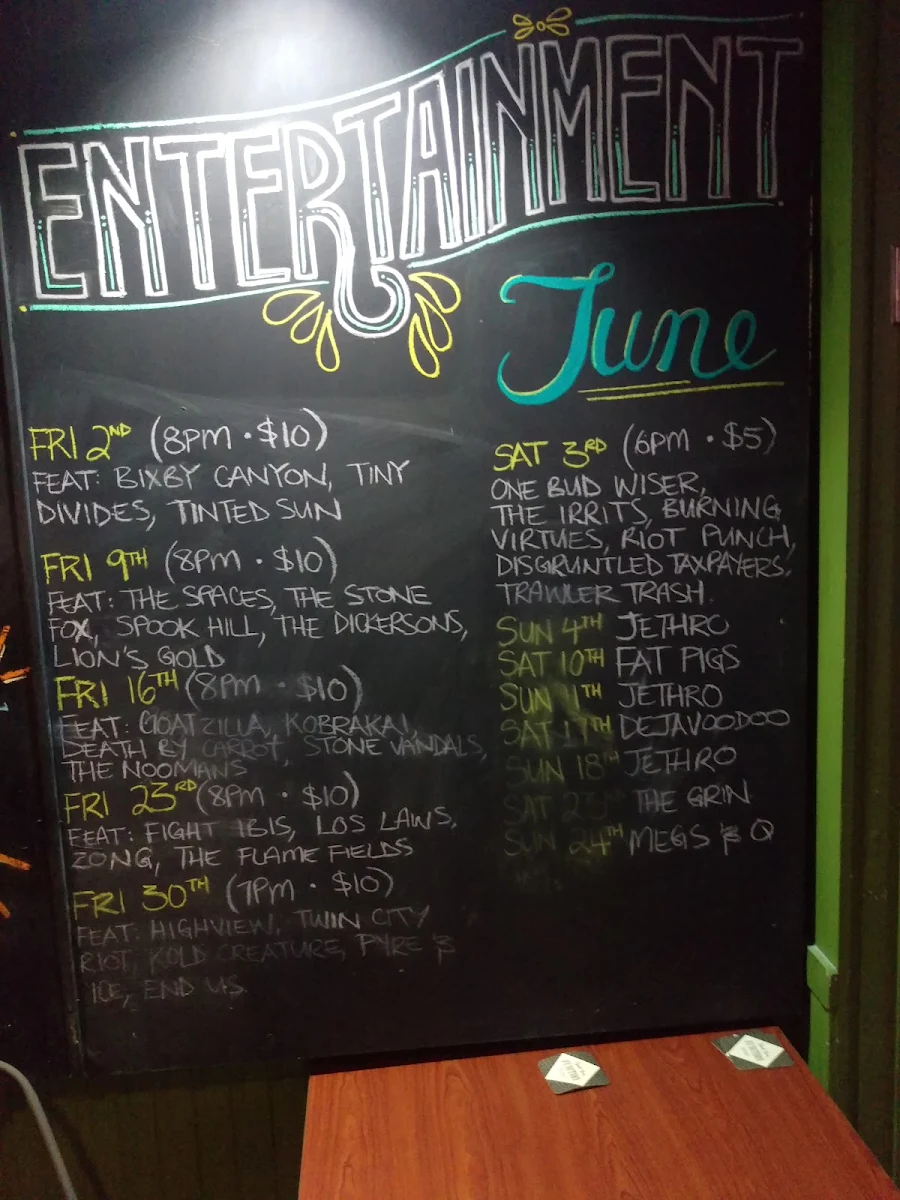 ENTERTAINMENT
June
FRI 2ND (8PM · $10)
FEAT: BIXBY CANYON, TINY
DIVIDES, TINTED SUN
FRI 9TH (8PM · $10)
FEAT: THE SPACES, THE STONE
FOX, SPOOK HILL, THE DICKERSONS,
LION'S GOLD
FRI 16TH (8PM · $10)
FEAT: GOATZILLA, KOBRAKAI,
DEATH BY CARROT, STONE VANDALS,
THE NOOMANS
FRI 23RD (8PM · $10)
FEAT: FIGHT IBIS, LOS LAWS,
ZONG, THE FLAME FIELDS
FRI 30TH (7PM · $10)
FEAT: HIGHVIEW, TWIN CITY
RIOT, KOLD CREATURE, PYRE &
ICE, END US.
SAT 3RD (6PM · $5)
ONE BUD WISER,
THE IRRITS, BURNING
VIRTUES, RIOT PUNCH,
DISGRUNTLED TAXPAYERS,
TRAWLER TRASH.
SUN 4TH JETHRO
SAT 10TH FAT PIGS
SUN 11TH JETHRO
SAT 17TH DEJAVOODOO
SUN 18TH JETHRO
SAT 23RD THE GRIN
SUN 24TH MEGS & Q